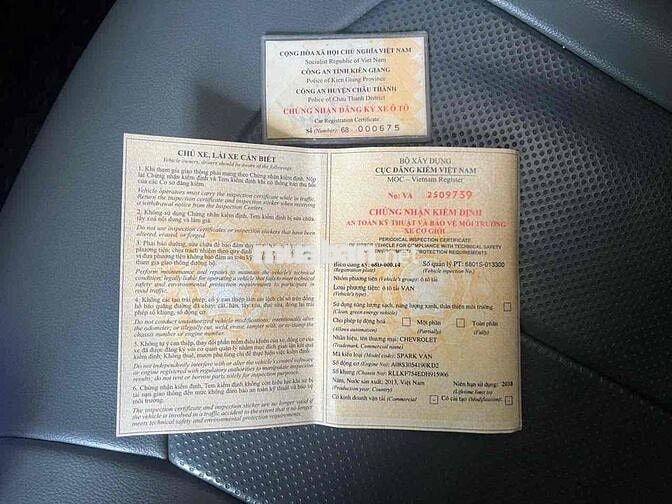 CỘNG HÒA XÃ HỘI CHỦ NGHĨA VIỆT NAM
Socialist Republic of Viet Nam
CÔNG AN TỈNH KIÊN GIANG
Police of Kien Giang Province
CÔNG AN HUYỆN CHÂU THÀNH
Police of Chau Thanh District
CHỨNG NHẬN ĐĂNG KÝ XE Ô TÔ
Car Registration Certificate
Số (Number): 68 000675
CHỦ XE, LÁI XE CẦN BIẾT
Vehicle owners, drivers should be aware of the followings
1. Khi tham gia giao thông phải mang theo Chứng nhận kiểm định. Nộp
lại Chứng nhận kiểm định, Tem kiểm định khi có thông báo thu hồi
của các Cơ sở đăng kiểm.
Vehicle operators must carry the inspection certificate while in traffic.
Return the inspection certificate and inspection sticker when receiving
a withdrawal notice from the Inspection Center.
2. Không sử dụng Chứng nhận kiểm định, Tem kiểm định bị sửa chữa,
tẩy xoá nội dung và làm giả.
Do not use inspection certificates or inspection stickers that have been
altered, erased, or forged.
3. Phải bảo dưỡng, sửa chữa để bảo đảm
phương tiện; chịu trách nhiệm
vì đưa phương tiện không bảo đảm an toàn
tham gia giao thông đường bộ.
Perform maintenance and repairs to maintain the vehicle's technical
condition; legally liable for operating a vehicle that fails to meet technical
safety and environmental protection requirements to participate in
road traffic.
4. Không cải tạo trái phép; cố ý can thiệp làm sai lệch chỉ số trên đồng
hồ báo quãng đường đã chạy; cắt, hàn, tẩy xóa, đục sửa, đóng lại trái
phép số khung, số động cơ.
Do not conduct unauthorized vehicle modifications; intentionally alter
the odometer; or illegally cut, weld, erase, tamper with, or re-stamp the
chassis number or engine number.
5. Không tự ý can thiệp, thay đổi phần mềm điều khiển của xe, động cơ
Do not independently interfere with or alter the vehicle control software
or engine registered with regulatory authorities to manipulate inspection
results; do not rent or borrow parts solely for inspection purpose.
6. Chứng nhận kiểm định, Tem kiểm định không còn hiệu lực khi xe bị
tai nạn giao thông đến mức không đảm bảo an toàn kỹ thuật và bảo vệ
môi trường.
The inspection certificate and inspection sticker are no longer valid if
the vehicle is involved in a traffic accident to the extent that it no longer
meets technical safety and environmental protection requirements.
BỘ XÂY DỰNG
CỤC ĐĂNG KIỂM VIỆT NAM
MOC – Vietnam Register
No: VA 2509739
CHỨNG NHẬN KIỂM ĐỊNH
AN TOÀN KỸ THUẬT VÀ BẢO VỆ MÔI TRƯỜNG
XE CƠ GIỚI
PERIODICAL INSPECTION CERTIFICATE
VEHICLE FOR COMPLIANCE WITH TECHNICAL SAFETY
PROTECTION REQUIREMENTS
Biển đăng ký: 68D-000.14 Số quản lý PT: 6801S-013300
(Registration plate) (Vehicle inspection No.)
Nhóm phương tiện (Vehicle's group): ô tô tải
Loại phương tiện: ô tô tải VAN
(Vehicle's type)
Sử dụng năng lượng sạch, năng lượng xanh, thân thiện môi trường.
(Clean, green energy vehicle)
Cho phép tự động hoá Một phần Toàn phần
(Allows automation) (Partially) (Fully)
Nhãn hiệu, tên thương mại: CHEVROLET
(Trademark, Commercial name)
Mã kiểu loại (Model code): SPARK VAN
Số động cơ (Engine No): A08S3054190KD2
Số khung (Chassis No): RLLKF754EDH915906
Năm, Nước sản xuất: 2013, Việt Nam Niên hạn sử dụng: 2038
(Production year, Country) (Lifetime limit to)
Có kinh doanh vận tải (Commercial Có cải tạo (Modification)